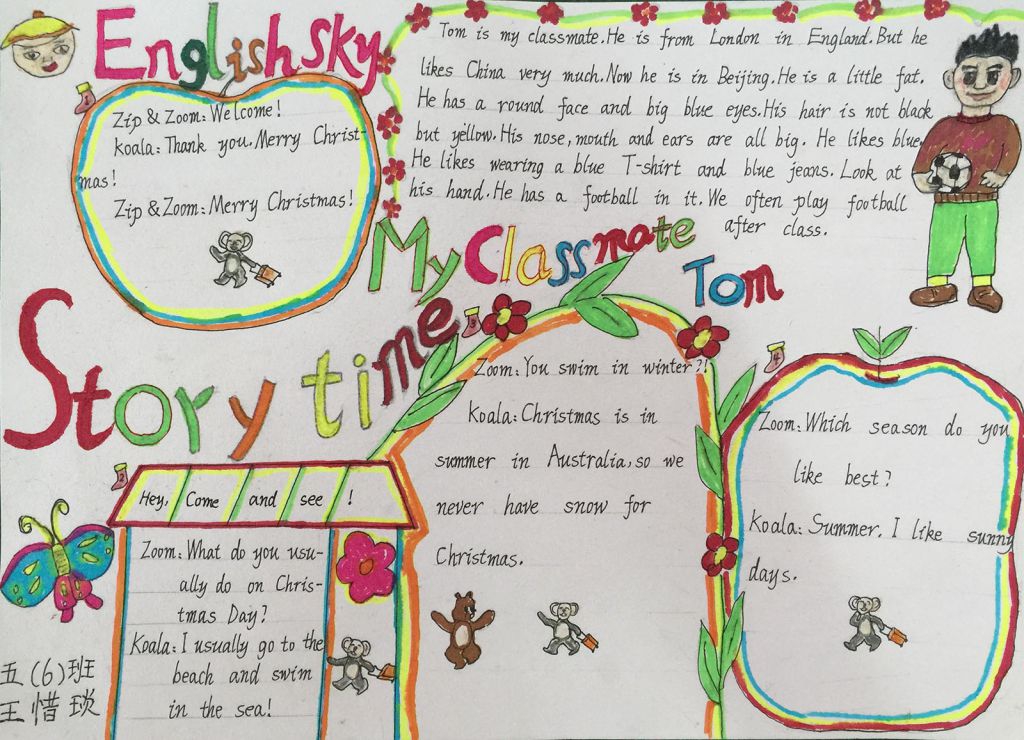 English sky
1
Zip & Zoom: Welcome!
Koala: Thank you. Merry Christ-
mas!
Zip & Zoom: Merry Christmas!
Tom is my classmate. He is from London in England. But he
likes China very much. Now he is in Beijing. He is a little fat.
He has a round face and big blue eyes. His hair is not black
but yellow. His nose, mouth and ears are all big. He likes blue.
He likes wearing a blue T-shirt and blue jeans. Look at
his hand. He has a football in it. We often play football
after class.
My Classmate
Tom
Story time
2
Hey, Come and see !
Zoom: What do you usu-
ally do on Chris-
tmas Day?
Koala: I usually go to the
beach and swim
in the sea!
3
Zoom: You swim in winter?!
Koala: Christmas is in
summer in Australia, so we
never have snow for
Christmas.
4
Zoom: Which season do you
like best?
Koala: Summer. I like sunny
days.
五(6)班
王惜琰